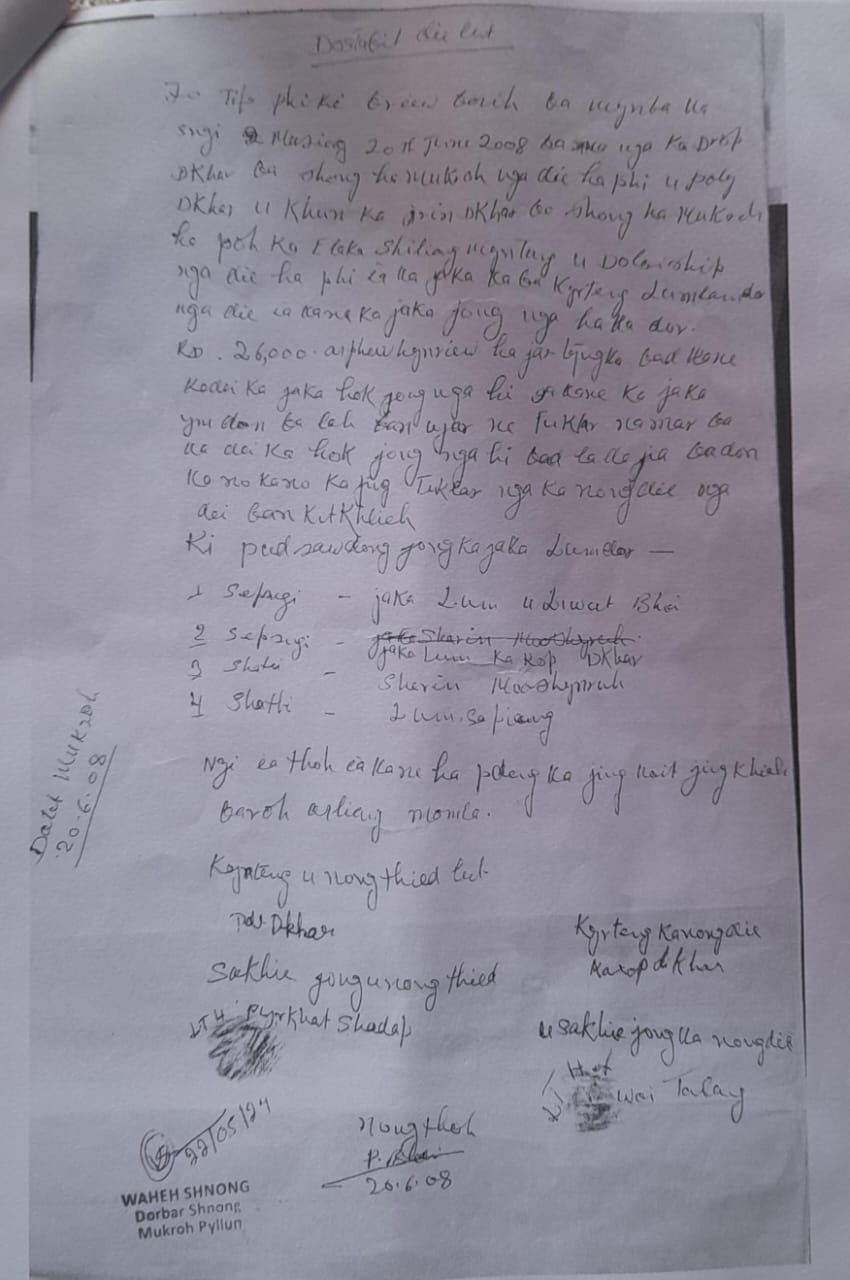 Dastabit die lut
To Tip phi ki briew baroh ba mynba ka
sngi Musiang 20th June 2008 ba nga ka Drop
Dkhar ba shong ha Mukroh nga die ha phi u poly
Dkhar u khun ka Dkhar ba shong ha Mukroh
ha poh ka Elaka Shiliang myntang u Doloiship
nga die ha phi ïa ka jaka kaba kyrteng Lumlandor
nga die ia kane ka jaka jong nga ha ka dor.
Rs. 26,000. arphew hynriew hajar tyngka bad kane
kadei ka jaka hok jong nga hi kane ka jaka
ym don ba lah ban ujar ne Tuklar namar ba
ka dei ka hok jong nga hi bad lada jia ba don
kano kano ka jing Tuklar nga ka nongdie nga
dei ban kit khlieh
Ki pud sawdong jong ka jaka Lumdor —
1 Sepngi - jaka Lum u Liwat Bhoi
2 Sepngi - jaka Sharin Mooshynruh
jaka Lum Ka Rop Dkhar
3 Shatei - Sharin Mooshynruh
4 Shatti - Lum. Sapiang
Ngi ïa thoh ïa kane ha pdeng ka jing koit jing khiah
baroh arliang monla.
Dated Mukroh
20.6.08
Kyrteng u nongthied lut
Dkhar
Kyrteng Kanongdie
Karop dkhar
Sakhie jong u nong thied
LTI Pyrkhat Shadap
u sakhie jong ka nongdie
LTI Wai Talang
22/05/24
WAHEH SHNONG
Dorbar Shnong
Mukroh Pyllun
Nongthoh
20.6.08